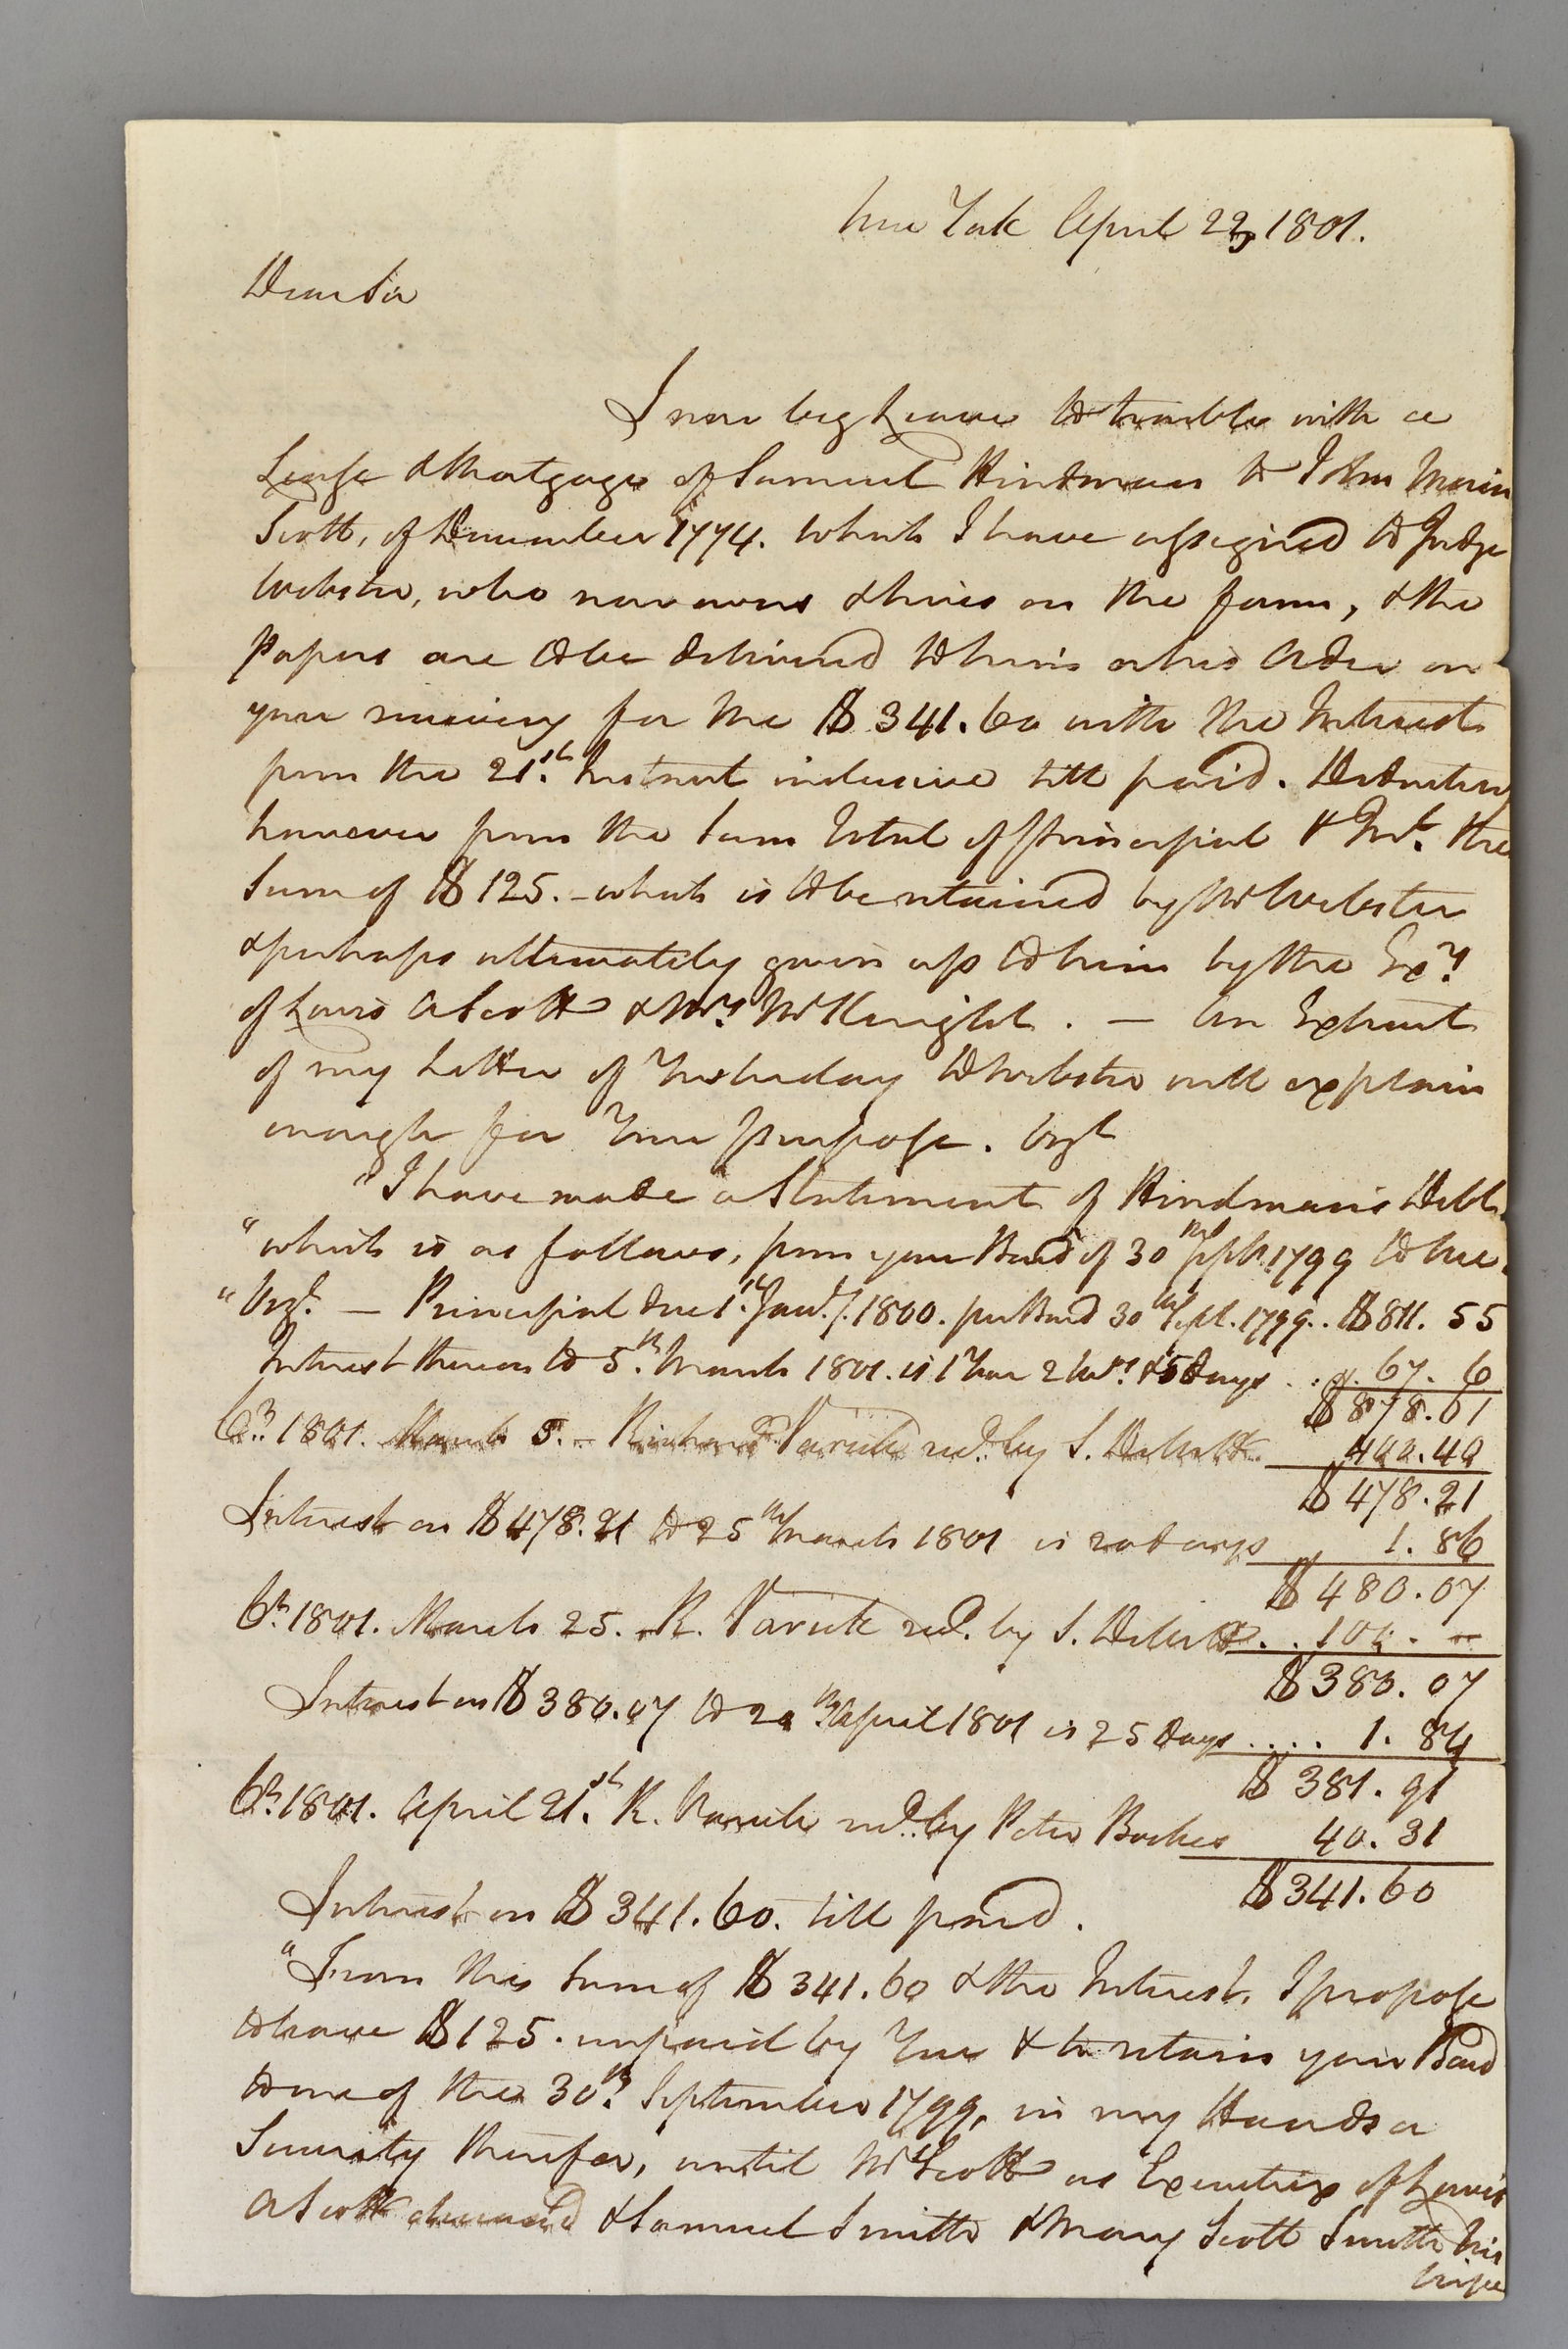 New York April 23, 1801.
Dear Sir
I now beg Leave to trouble with a
Lease & Mortgage of Samuel Hindman to John Morin
Scott, of December 1774. which I have assigned to Judge
Webster, who now owns & lives on the farm, & the
Papers are to be delivered to him or his Order on
your receiving for me $341.60 with the Interest
from the 21st. Instant inclusive till paid. Deducting
however from the Sum total of Principal & Int. the
Sum of $125. – which is to be retained by Mr Webster
& perhaps ultimately given up to him by the Exrs.
of Lewis A Scott & Mrs. McKnight. — An Extract
of my Letter of Yesterday to Webster will explain
enough for Your Purpose. Vizt
"I have made a Statement of Hindman's Debt.
"which is as follows, from your Bond of 30th Septr. 1799 to me.
"Vizt. — Principal due 1st. Jany. 1800. per Bond 30th Sept. 1799.. $811. 55
Interest thereon to 5th. March 1801. is 1 Year 2 Mos. & 5 days . . . 67. 6
$878.61
Cr. 1801. March 5. – Richard Varick recd. by S. Dewitt 400.40
$478.21
Interest on $478.21 to 25th March 1801 is 20 days 1. 86
$480.07
Cr. 1801. March 25. R. Varick recd. by S. Dewitt . . 100. –
$380. 07
Interest on $380.07 to 20th April 1801 is 25 days . . . . 1. 84
$381. 91
Cr. 1801. April 21st. R. Varick recd. by Peter 40. 31
$341.60
Interest on $341.60. till paid.
"From this Sum of $341.60 & the Interest, I propose
to have $125. unpaid by You & to retain your Bond
to me of the 30th. September 1799, in my Hands a
Security therefor, until Mrs Scott as Executrix of Lewis
A Scott deceased & Samuel Smith & Mary Scott Smith his
Wife